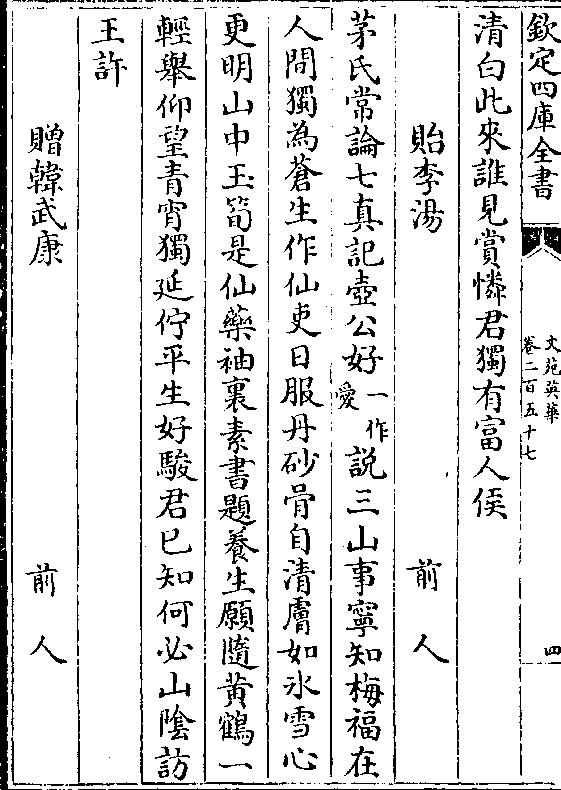 欽定四庫全書
文苑英華
卷二百五十七
四
清白此來誰見賞憐君獨有富人侯
貽李湯 前人
茅氏常論七真記壺公好一作愛說三山事寧知梅福在
人間獨為蒼生作仙吏日服丹砂骨自清膚如冰雪心
更明山中玉筍是仙藥袖裏素書題養生願隨黄鶴一
輕舉仰望青霄獨延佇平生好駿君已知何必山陰訪
王許
贈韓武康 前人